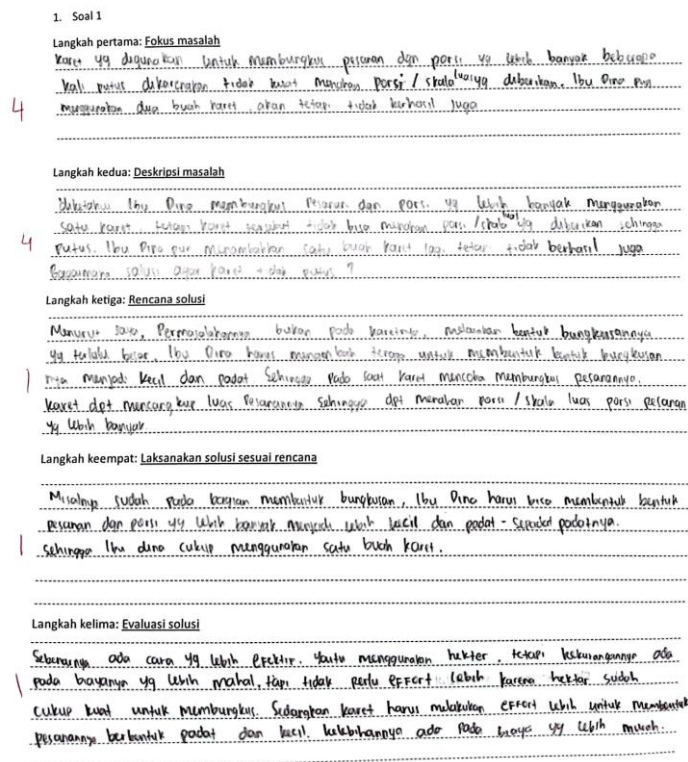 1. Soal 1
Langkah pertama: Fokus masalah
Karet yg digunakan untuk membungkus pesanan dgn porsi yg lebih banyak beberapa
kali putus dikarenakan tidak kuat menahan porsi / skala luas yg diberikan. Ibu Dina pun
4
menggunakan dua buah karet, akan tetapi tidak berhasil juga
Langkah kedua: Deskripsi masalah
diketahui Ibu Dina membungkus pesanan dan porsi yg lebih banyak menggunakan
satu karet, tetapi karet tersebut tidak bisa menahan porsi / skala luas yg diberikan sehingga
4
putus. Ibu Dina pun menambahkan satu buah karet lagi tetapi tidak berhasil juga
Bagaimana solusi agar karet tidak putus ?
Langkah ketiga: Rencana solusi
Menurut saya, Permasalahannya bukan pada karetnya, melainkan bentuk bungkusannya
yg terlalu besar, Ibu Dina harus untuk membentuk bentuk bungkusan
nya menjadi kecil dan padat Sehingga pada saat karet mencoba membungkus pesanannya.
1
karet dpt mencangkup luas pesanannya sehingga dpt menahan porsi / skala luas porsi pesanan
yg lebih banyak
Langkah keempat: Laksanakan solusi sesuai rencana
Misalnya sudah pada bagian membentuk bungkusan, Ibu Dina harus bisa membentuk bentuk
pesanan dan porsi yg lebih banyak menjadi lebih kecil dan padat - sepadat padatnya.
1
sehingga Ibu dina cukup menggunakan satu buah karet.
Langkah kelima: Evaluasi solusi
Sebenarnya ada cara yg lebih efektif. yaitu menggunakan hekter, tetapi kekurangannya ada
1
pada biayanya yg lebih mahal, tapi tidak perlu effort lebih karena hekter sudah
cukup kuat untuk membungkus. Sedangkan karet harus melakukan effort lebih untuk membentuk
pesanannya berbentuk padat dan kecil. kelebihannya ada pada biaya yg lebih murah.